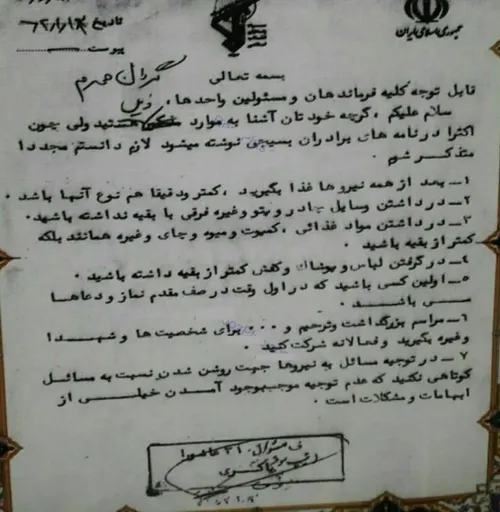 جمهوری اسلامی ایران
تاریخ
پیوست
بسمه تعالی
قابل توجه کلیه فرماندهان و مسئولین واحدها،
سلام علیکم، گرچه خودتان آشنا به موارد ذیل هستید ولی چون
اکثرا درنامه های برادران بسیجی نوشته میشود لازم دانستم مجددا
متذکر شوم.
۱ــ بعد از همه نیروها غذا بگیرید، کمتر ودقیقا هم نوع آنها باشد.
۲ــ درداشتن وسایل چادر و پتو وغیره فرقی با بقیه نداشته باشید.
۳ــ درداشتن مواد غذائی، کمپوت ومیوه و چای وغیره همانند بلکه
کمتر از بقیه باشید.
۴ــ در گرفتن لباس و پوشاک وکفش کمتر از بقیه داشته باشید.
۵ــ اولین کسی باشید که در اول وقت در صف مقدم نماز و دعاها
می باشد.
۶ــ مراسم بزرگداشت وترحیم و ... برای شخصیت ها و شهدا
وغیره بگیرید و فعالانه شرکت کنید.
۷ــ در توجیه مسائل به نیروها جهت روشن شدن نسبت به مسائل
کوتاهی نکنید که عدم توجیه موجب بوجود آمدن خیلی از
ابهامات و مشکلات است.